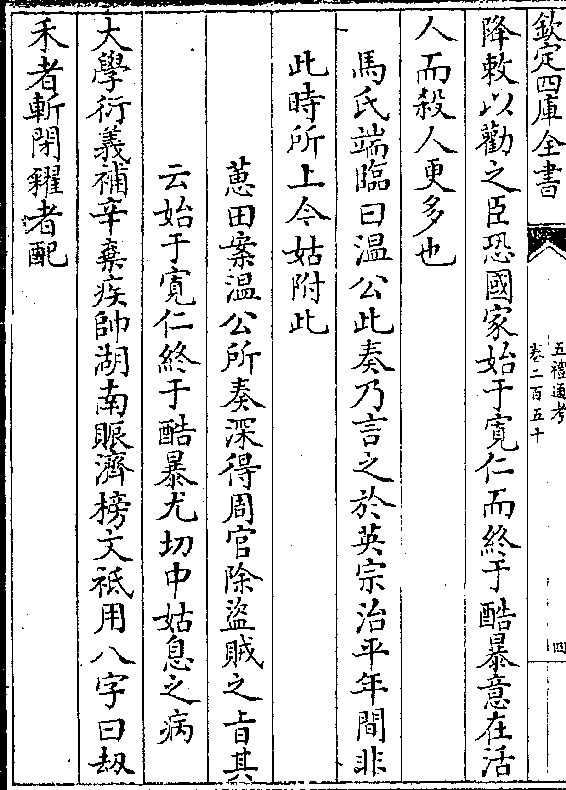 欽定四庫全書
五禮通考
卷二百五十
四
降敕以勸之臣恐國家始于寛仁而終于酷暴意在活
人而殺人更多也
馬氏端臨曰温公此奏乃言之於英宗治平年間非
此時所上今姑附此
蕙田案温公所奏深得周官除盗賊之㫖其
云始于寛仁終于酷暴尤切中姑息之病
大學衍義補辛棄疾帥湖南賑濟榜文祇用八字曰劫
禾者斬閉糴者配